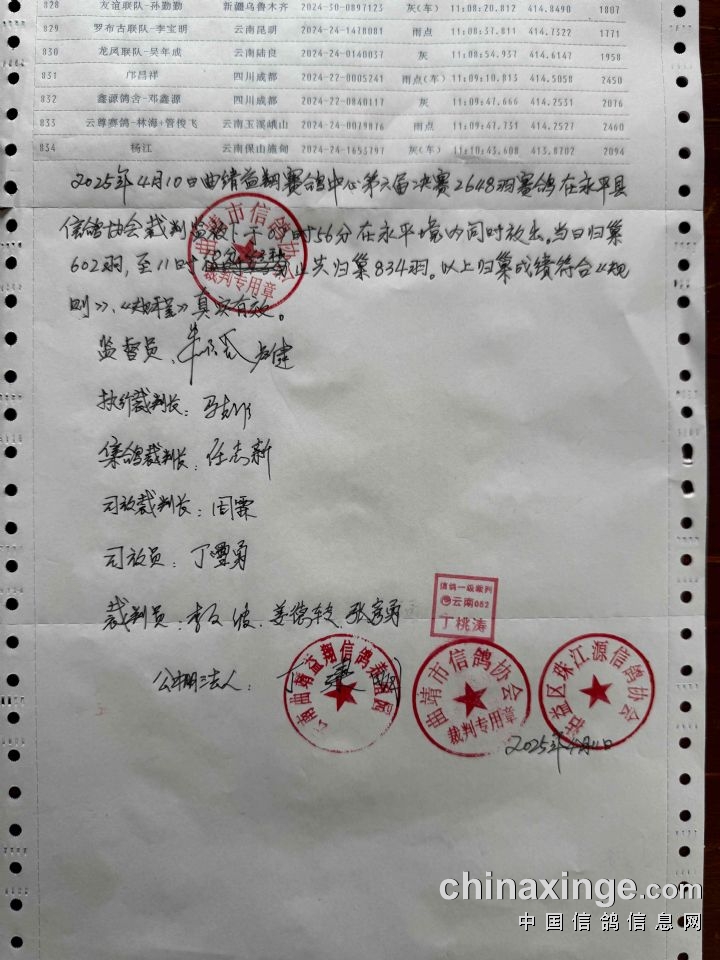 828 友谊联队-孙勤勤 新疆乌鲁木齐 2024-30-0897123 灰(车) 11:08:20.812 414.8490 1807
829 罗布古联队-李宝明 云南昆明 2024-24-1478081 雨点 11:08:37.811 414.7322 1771
830 龙凤联队-吴年成 云南陆良 2024-24-0140037 灰 11:08:54.937 414.6147 1958
831 邝昌祥 四川成都 2024-22-0005241 雨点(车) 11:09:10.813 414.5058 2450
832 鑫源鸽舍-邓鑫源 四川成都 2024-22-0840117 灰 11:09:47.666 414.2531 2076
833 云尊赛鸽-林海+管俊飞 云南玉溪峨山 2024-24-0079876 雨点 11:09:47.731 414.2527 2460
834 杨江 云南保山施甸 2024-24-1653797 灰(车) 11:10:43.608 413.8702 2094
2025年4月10日曲靖益翔赛鸽中心第六届决赛2648羽赛鸽在永平县
信鸽协会裁判监放下于 时56分在永平境内同时放出。当日归巢
602羽,至11时 止共归巢834羽。以上归巢成绩符合《规
则》、《规程》真实有效。
监督员: 卢健
执行裁判长:
集鸽裁判长:任志新
司放裁判长:周霖
司放员:丁雪勇
裁判员: 张彦勇
公棚法人:
曲靖市信鸽协会
裁判专用章
信鸽一级裁判
云南052
丁桃涛
云南曲靖益翔信鸽养殖园
曲靖市信鸽协会
裁判专用章
沾益区珠江源信鸽协会
2025年4月11日
chinaxinge.com
中国信鸽信息网